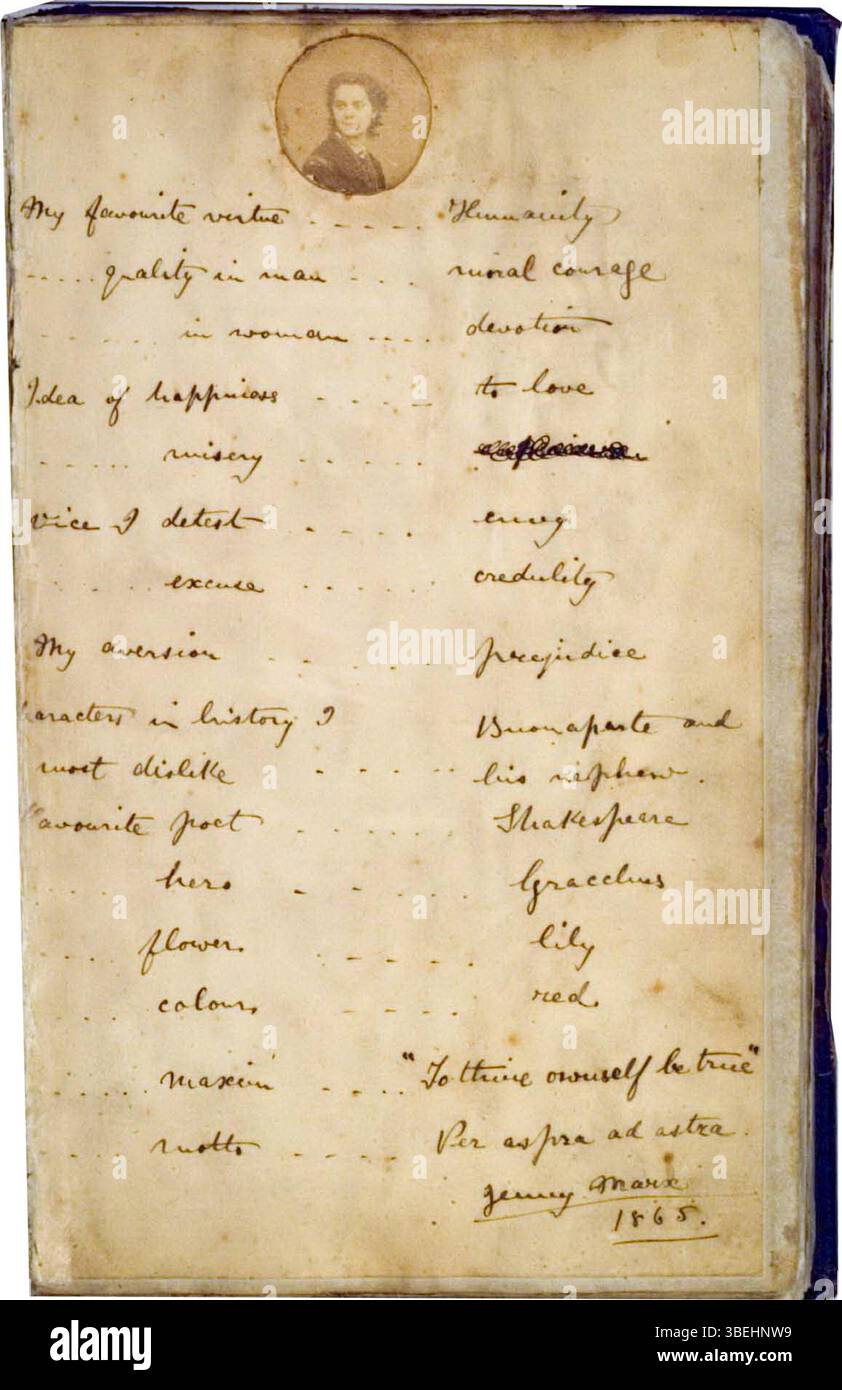 My favourite virtue . - - - - . Humanity
. . . . . quality in man . . . moral courage
. . . . . . in woman . . . . devotion
Idea of happiness . . . . - to love
. . . . . . misery . . . . . .
vice I detest . . . . . envy
. . . . excuse . . . . . . credulity
My aversion . . . . . prejudice
aracters in history I Buonaparte and
most dislike . . . . . his nephew.
avourite poet . . . . . . Shakespeare
. . . hero . . . . . . Gracchus
. . . . flower . . . . . . lily
. . . colour . . . . red.
. . . . . maxim . . . . "To thine ownself be true"
. . . motto . . . . . Per aspra ad astra.
Jenny Marx
1865.
a
alamy
alamy
Image ID: 3BEHNW9
www.alamy.com